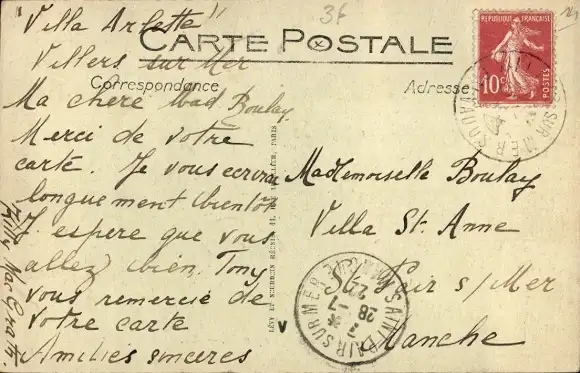 "Villa Arlette"
Villers sur Mer
3f
CARTE POSTALE
Correspondance
Adresse
REPUBLIQUE FRANÇAISE
10c
POSTES
Ma chère Mad Boulay
Merci de votre
carte. Je vous ecrirai
longuement bientôt
J. espere que vous
allez bien. Tony
vous remercié de
votre carte
Amitiés sinceres
LÉVY ET NEURDEIN RÉUNIS, 44, PARIS
Mademoiselle Boulay
Villa St. Anne
St Pair s/Mer
Manche
SAINT PAIR SUR MER
MANCHE
28 -7
22
SUR MER
V